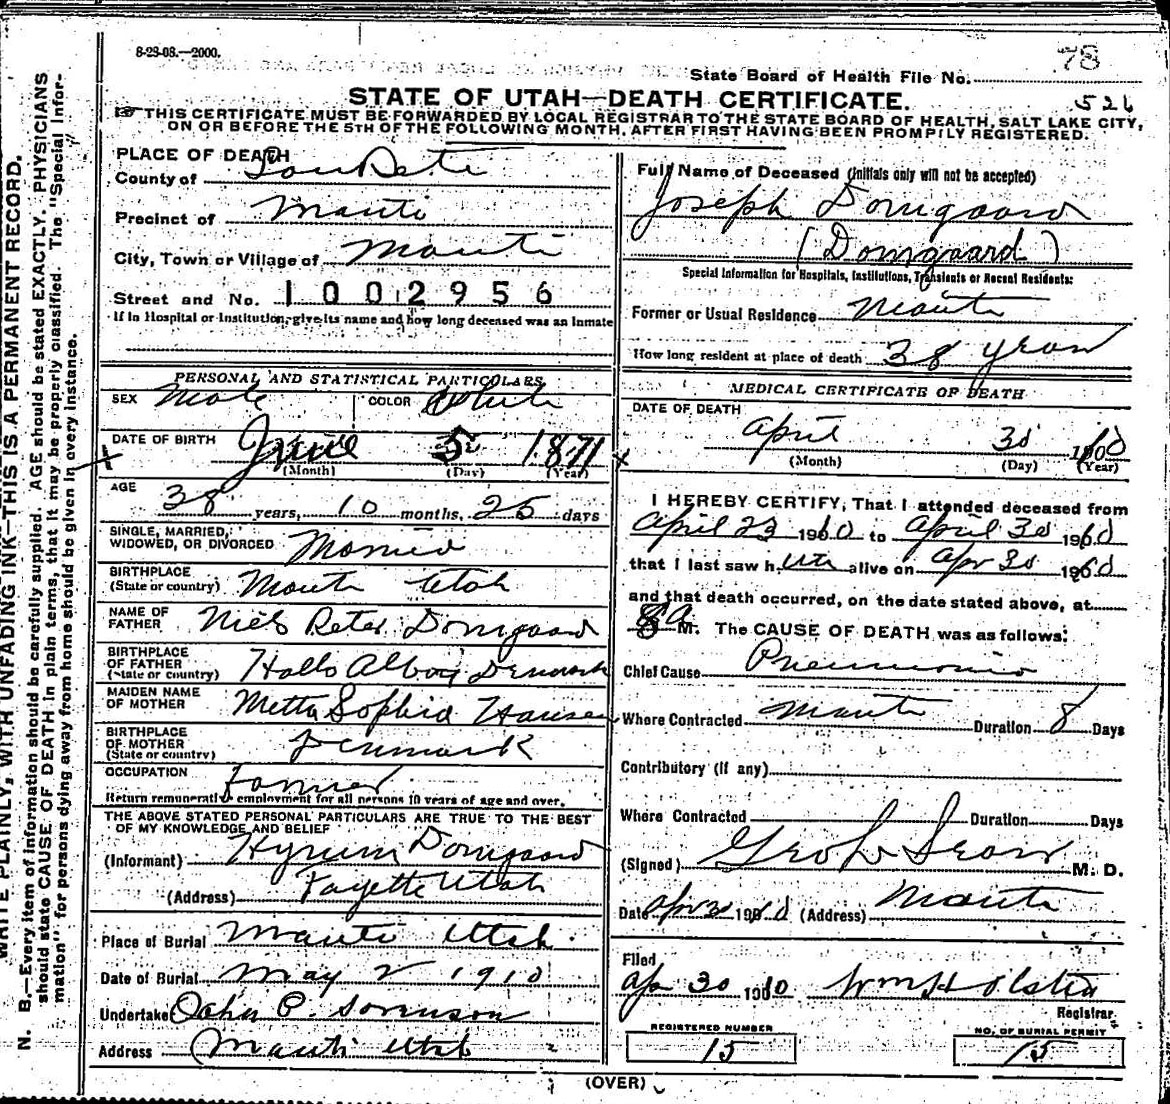 8-23-08.—2000.
78
State Board of Health File No.
STATE OF UTAH—DEATH CERTIFICATE.
526
THIS CERTIFICATE MUST BE FORWARDED BY LOCAL REGISTRAR TO THE STATE BOARD OF HEALTH, SALT LAKE CITY,
ON OR BEFORE THE 5TH OF THE FOLLOWING MONTH, AFTER FIRST HAVING BEEN PROMPTLY REGISTERED.
WRITE PLAINLY, WITH UNFADING INK—THIS IS A PERMANENT RECORD.
N. B.—Every item of information should be carefully supplied. AGE should be stated EXACTLY. PHYSICIANS
should state CAUSE OF DEATH in plain terms, that it may be properly classified. The "Special Infor-
mation" for persons dying away from home should be given in every instance.
PLACE OF DEATH
County of SanPete
Precinct of Manti
City, Town or Village of Manti
Street and No. 1002956
If in Hospital or Institution, give its name and how long deceased was an inmate
PERSONAL AND STATISTICAL PARTICULARS
SEX Male COLOR White
DATE OF BIRTH June 5 1871
(Month) (Day) (Year)
AGE 38 years, 10 months, 25 days
SINGLE, MARRIED,
WIDOWED, OR DIVORCED Married
BIRTHPLACE
(State or country) Manti Utah
NAME OF
FATHER Niels Peter Domgaard
BIRTHPLACE
OF FATHER
(State or country) Denmark
MAIDEN NAME
OF MOTHER Metta Sophia Hansen
BIRTHPLACE
OF MOTHER
(State or country) Denmark
OCCUPATION Farmer
Return remunerative employment for all persons 10 years of age and over.
THE ABOVE STATED PERSONAL PARTICULARS ARE TRUE TO THE BEST
OF MY KNOWLEDGE AND BELIEF
(Informant) Hyrum Domgaard
(Address) Fayette Utah
Place of Burial Manti Utah
Date of Burial May 2 1910
Undertaker P. Sorenson
Address Manti Utah
Full Name of Deceased (Initials only will not be accepted)
Joseph Domgaard
(Domgaard)
Special Information for Hospitals, Institutions, Transients or Recent Residents:
Former or Usual Residence Manti
How long resident at place of death 38 years
MEDICAL CERTIFICATE OF DEATH
DATE OF DEATH
April 30 1910
(Month) (Day) (Year)
I HEREBY CERTIFY, That I attended deceased from
April 23 1910 to April 30 1910
that I last saw h im alive on Apr 30 1910
and that death occurred, on the date stated above, at
8 A M. The CAUSE OF DEATH was as follows:
Chief Cause Pneumonia
Where Contracted Manti Duration 8 Days
Contributory (if any)
Where Contracted Duration Days
(Signed) Geo L Sears M. D.
Date Apr 30 1910 (Address) Manti
Filed
Apr 30 1910 Wm H Olsten
Registrar
REGISTERED NUMBER
15
NO. OF BURIAL PERMIT
15
(OVER)